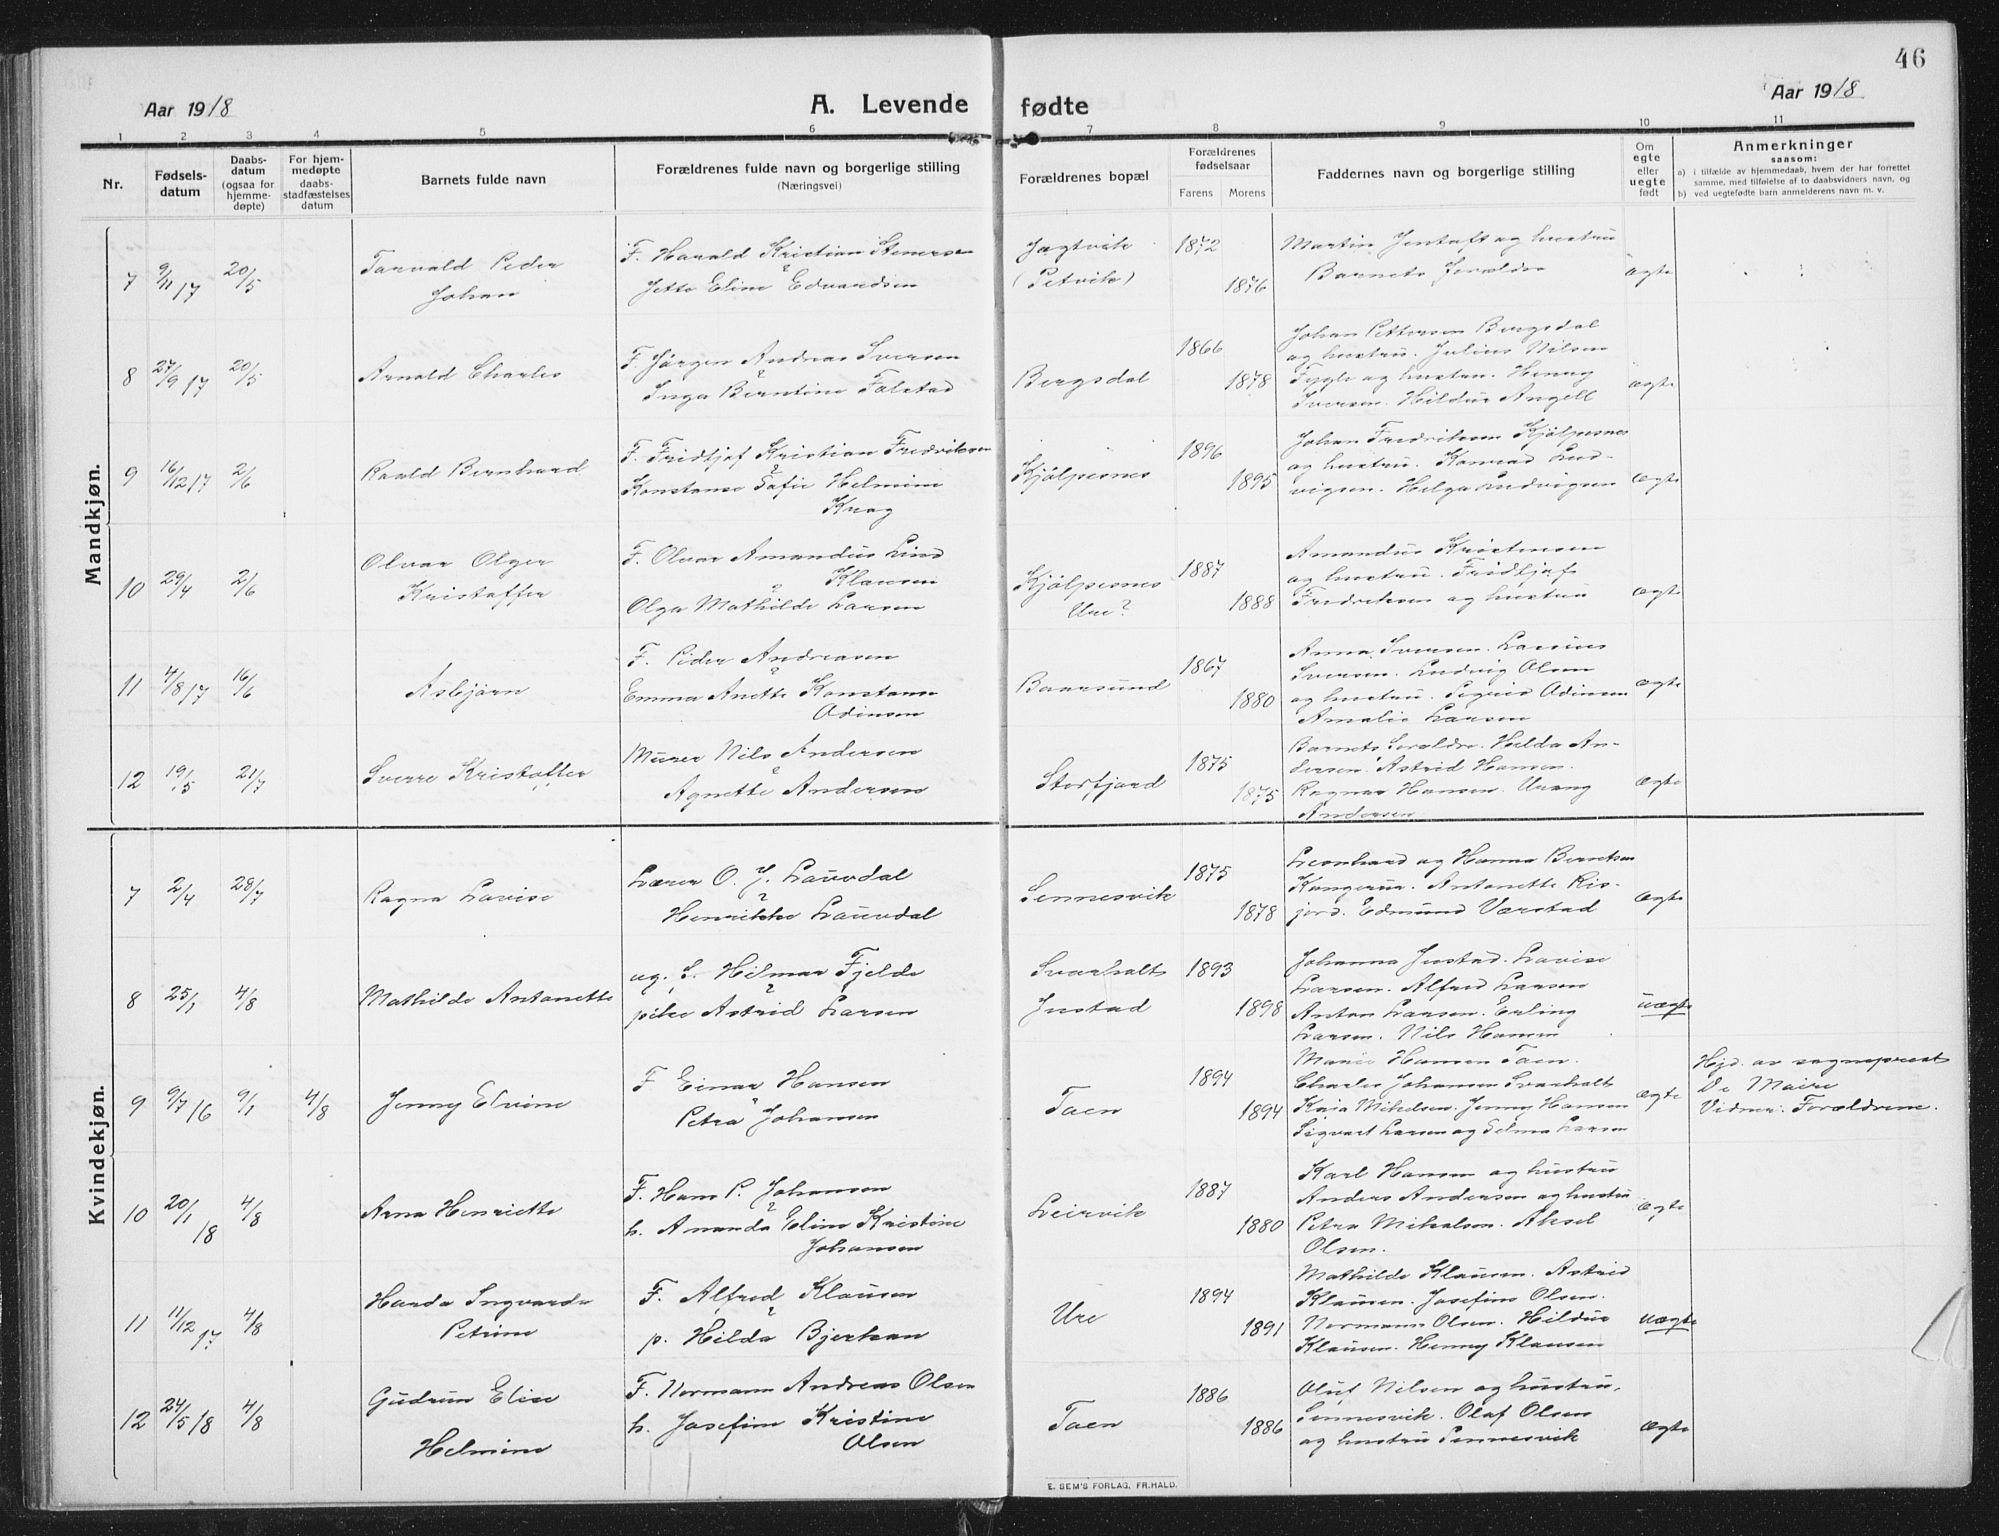 46
Aar 1918
A. Levende fødte
Aar 1918
1 2 3 4 5 6 7 8 9 10 11
Nr.
Fødsels-
datum
Daabs-
datum
(ogsaa for
hjemme-
døpte)
For hjem-
medøpte
daabs-
stadfæstelses
datum
Barnets fulde navn
Forældrenes fulde navn og borgerlige stilling
(Næringsvei)
Forældrenes bopæl
Forældrenes
fødselsaar
Farens Morens
Faddernes navn og borgerlige stilling
Om
egte
eller
uegte
født
Anmerkninger
saasom:
a) i tilfælde av hjemmedaab, hvem der har forrettet
samme, med tilføielse af to daabsvidners navn, og
b) ved uegtefødte barn anmelderens navn m. v.
Mandkjøn.
7 9/11 17 20/5
Torvald Peder
Johan
F. Harald Kristian Stenersen
Jette Eline Edvardsen
Jogtvik
(Petvik)
1872
1876
Martin Justaft og hustru
Barnets forældre
ægte
8 27/9 17 20/5
Arnold Charles
F. Jørgen Andreas Iversen
Inga Berntine Falstad
Bergsdal
1866
1878
Johan Pettersen Bergsdal
og hustru. Julius Nilsen
Fygle og hustru. Henny
Iversen. Hildur Angell
ægte
9 16/12 17 2/6
Roald Bernhard
F. Fridtjof Kristian Fredriksen
Konstanse Sofie Helmine
Knag
Kjölpesnes
1896
1895
Johan Fredriksen Kjölpesnes
og hustru. Konrad Lud-
vigsen. Helga Ludvigsen
ægte
10 29/4 2/6
Olvar Olger
Kristoffer
F. Olvar Amandus Lind
Klausen
Olga Mathilde Larsen
Kjölpesnes
Ure?
1887
1888
Amandus Kristensen
og hustru. Fridtjof
Fredriksen og hustru
ægte
11 4/8 17 16/6
Asbjørn
F. Peder Andreasen
Emma Anette Konstanse
Odinsen
Baarsund
1867
1880
Anna Iversen. Laurits
Iversen. Ludvig Olsen
og hustru. Sigrid Odinsen
Amalie Larsen
ægte
12 19/5 21/7
Sverre Kristoffer
Murer Nils Andersen
Agnette Andersen
Storfjord
1875
1875
Barnets forældre. Hilda An-
dersen. Astrid Hansen.
Ragnar Hansen. Urang
Andersen
ægte
Kvindekjøn.
7 2/4 28/7
Ragna Lovise
Lærer O. J. Lauvdal
Henrikke Lauvdal
Sennesvik
1875
1878
Leonhard og Hanna Berntsen
Kongerur. Antonette Ris-
jord. Edmund Værstad
ægte
8 25/1 4/8
Mathilde Antonette
ug. f. Hilmar Fjelde
pike Astrid Larsen
Svarholt
Justad
1893
1898
Johanna Justad. Lovise
Larsen. Alfred Larsen
Anton Larsen. Erling
Larsen. Nils Hansen
uægte
9 9/7 16 9/1 4/8
Jenny Elvine
F Einar Hansen
Petra Johansen
Taen
1894
1894
Marie Hansen Taen.
Charles Johansen Svarholt
Kaja Mikelsen. Jenny Hansen
Sigvart Larsen og Selma Larsen
ægte
Hjd. av sognepræst
De Maire
Vidner: Forældrene.
10 20/1 18 4/8
Arna Henriette
F. Hans P. Johansen
h. Amanda Eline Kristine
Johansen
Leirvik
1887
1880
Karl Hansen og hustru
Anders Andersen og hustru
Petra Mikalsen. Aksel
Olsen.
ægte
11 11/12 17 4/8
Harda Ingvarda
Petrine
F. Alfred Klausen
p. Hilda Bjerkan
Ure
1894
1891
Mathilde Klausen. Astrid
Klausen. Josefine Olsen.
Normann Olsen. Hildur
Klausen. Henny Klausen
uægte
12 24/5 18 4/8
Gudrun Elise
Helmine
F. Normann Andreas Olsen
h. Josefine Kristine
Olsen
Taen
1886
1886
Oluf Nilsen og hustru,
Sennesvik. Olaf Olsen
og hustru Sennesvik
ægte
E. SEM'S FORLAG, FR.HALD.